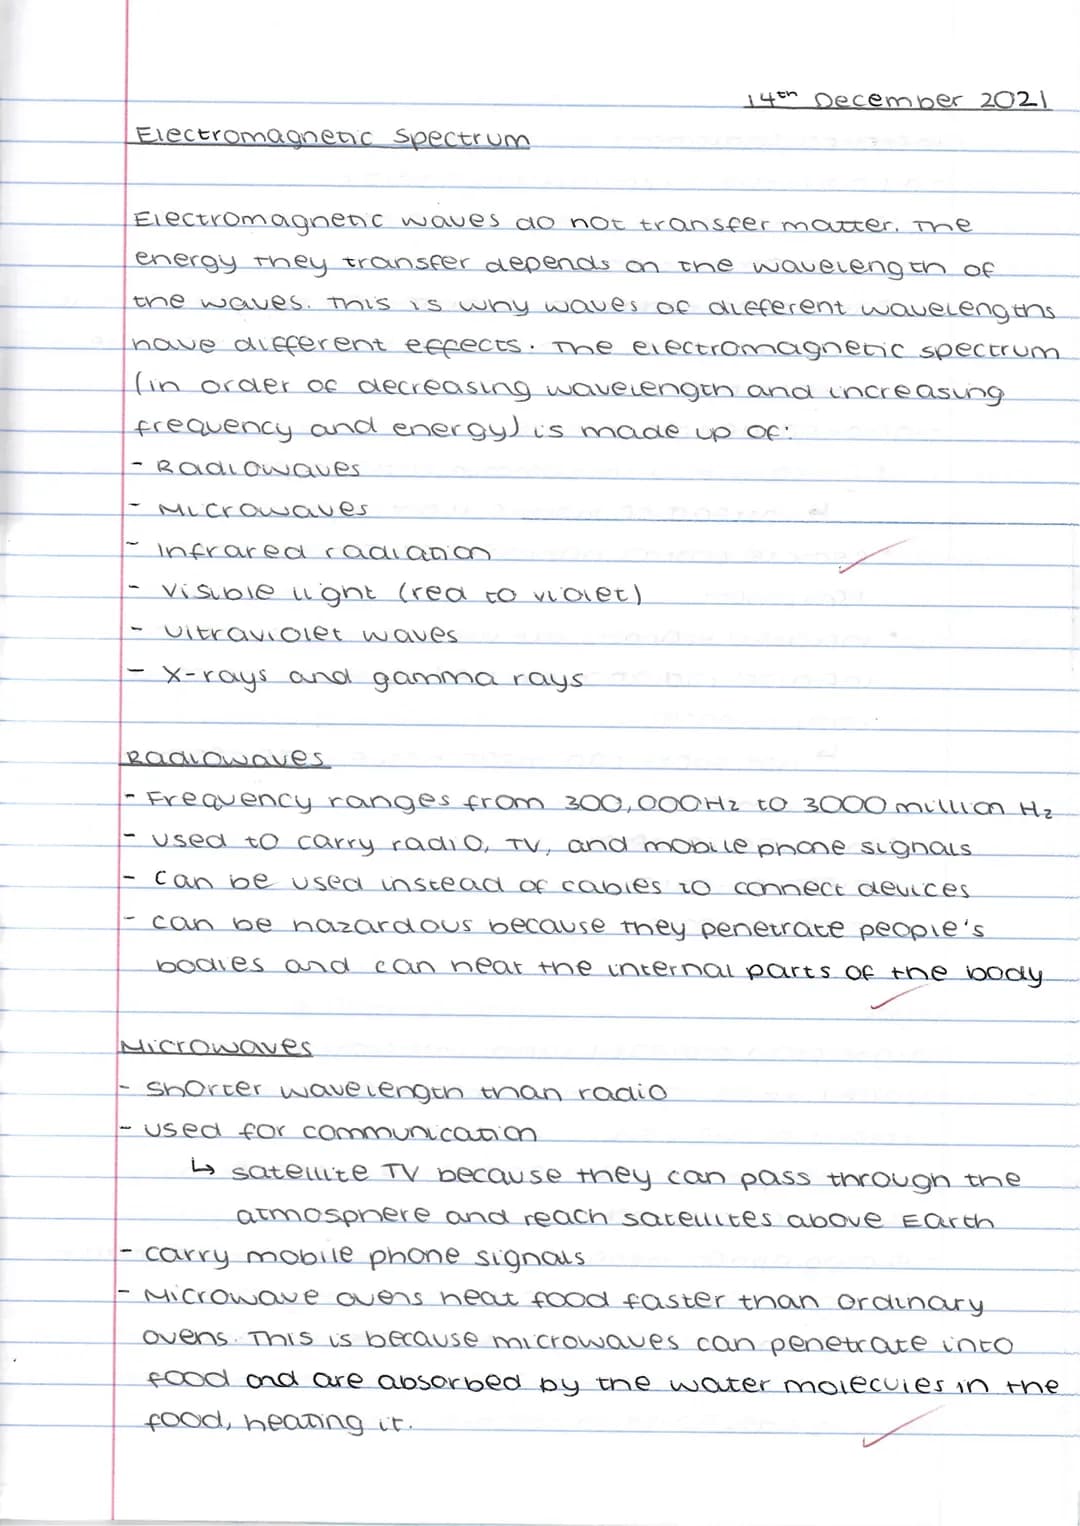 14th December 2021
Electromagnetic Spectrum
Electromagnetic waves do not transfer matter. The
energy they transfer depends on the wavelength of
the waves. This is why waves of different wavelengths
have different effects. The electromagnetic spectrum
(in order of decreasing wavelength and increasing
frequency and energy) is made up of:
- Radiowaves
- Microwaves
- Infrared radiation
- Visible light (red to violet)
- Ultraviolet waves
- X-rays and gamma rays
Radiowaves
- Frequency ranges from 300,000Hz to 3000 million Hz
- used to carry radio, TV, and mobile phone signals
- Can be used instead of cables to connect devices
- can be hazardous because they penetrate people's
bodies and can heat the internal parts of the body
Microwaves
- Shorter wavelength than radio
- used for communication
↳ satellite TV because they can pass through the
atmosphere and reach satellites above Earth
- carry mobile phone signals
- Microwave ovens heat food faster than ordinary
ovens. This is because microwaves can penetrate into
food and are absorbed by the water molecules in the
food, heating it.